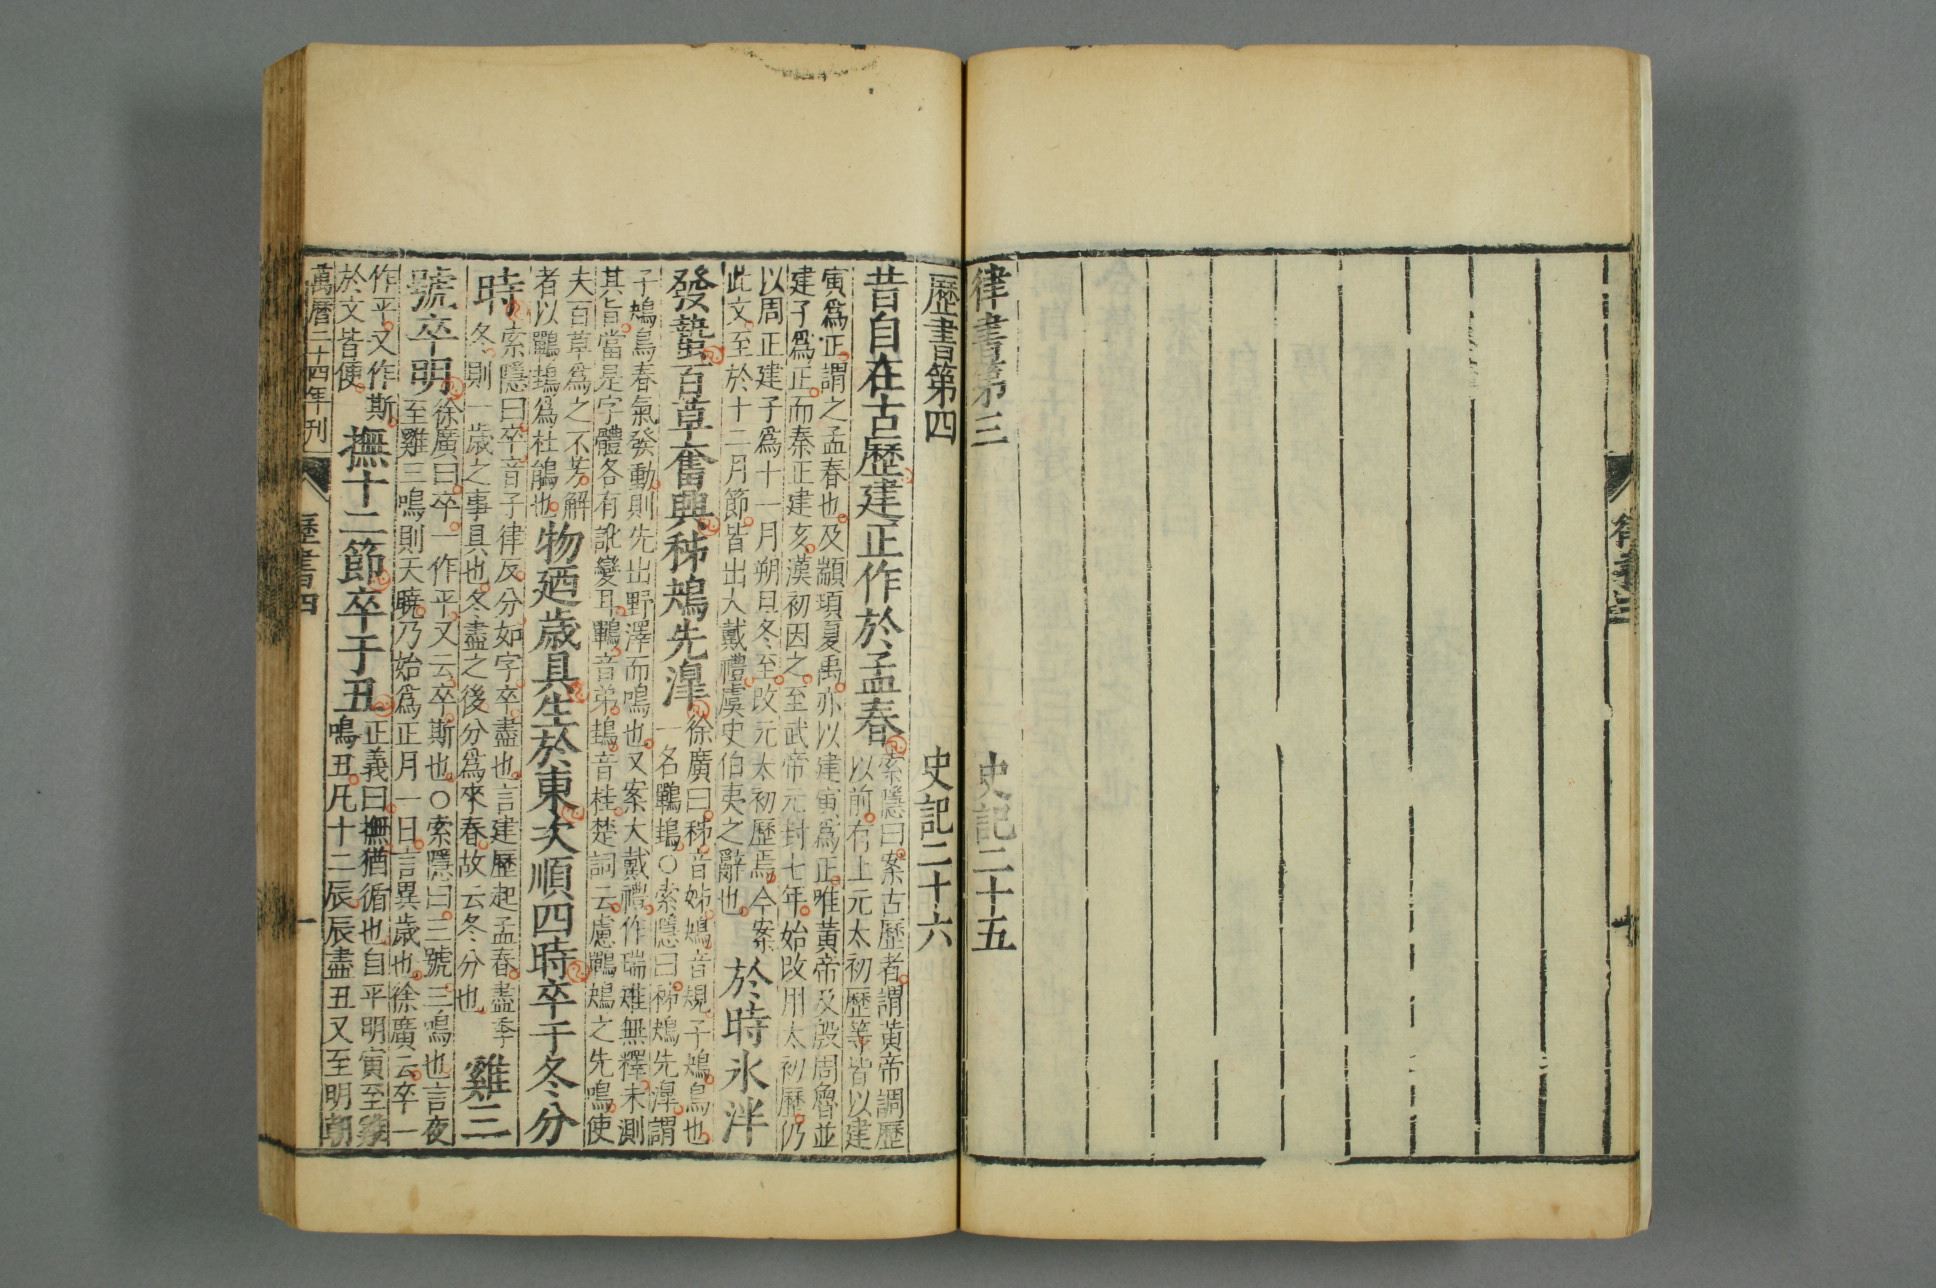 律書第三 史記二十五
歷書第四 史記二十六
昔自在古歷建正作於孟春
索隱曰案古歷者謂黃帝調歷
以前有上元太初歷等皆以建
寅爲正謂之孟春也及顓頊夏禹亦以建寅爲正唯黃帝及殷周魯並
建子爲正而秦正建亥漢初因之至武帝元封七年始改用太初歷仍
以周正建子爲十一月朔旦冬至改元太初歷焉今案
此文至於十二月節皆出大戴禮虞史伯夷之辭也
於時冰泮
發蟄百草奮興秭鳺先滜
徐廣曰秭音姊鳺音規子鳺鳥也
一名鷤䳏○索隱曰秭鳺先滜謂
子鳺鳥春氣發動則先出野澤而鳴也又案大戴禮作瑞雉無釋未測
其旨當是字體各有訛變耳鷤音弟䳏音桂楚詞云慮鷤鳺之先鳴使
夫百草爲之不芳解
者以鷤䳏爲杜鵑也
物廼歲具生於東次順四時卒于冬分
時
索隱曰卒音子律反分如字卒盡也言建歷起孟春盡季
冬則一歲之事具也冬盡之後分爲來春故云冬分也
雞三
號卒明
徐廣曰卒一作平又云卒斯也○索隱曰三號三鳴也言夜
至雞三鳴則天曉乃始爲正月一日言異歲也徐廣云卒一
作平又作斯
於文皆便
撫十二節卒于丑
正義曰撫猶循也自平明寅至雞
鳴丑凡十二辰辰盡丑又至明朝
萬曆二十四年刊 歷書四 一